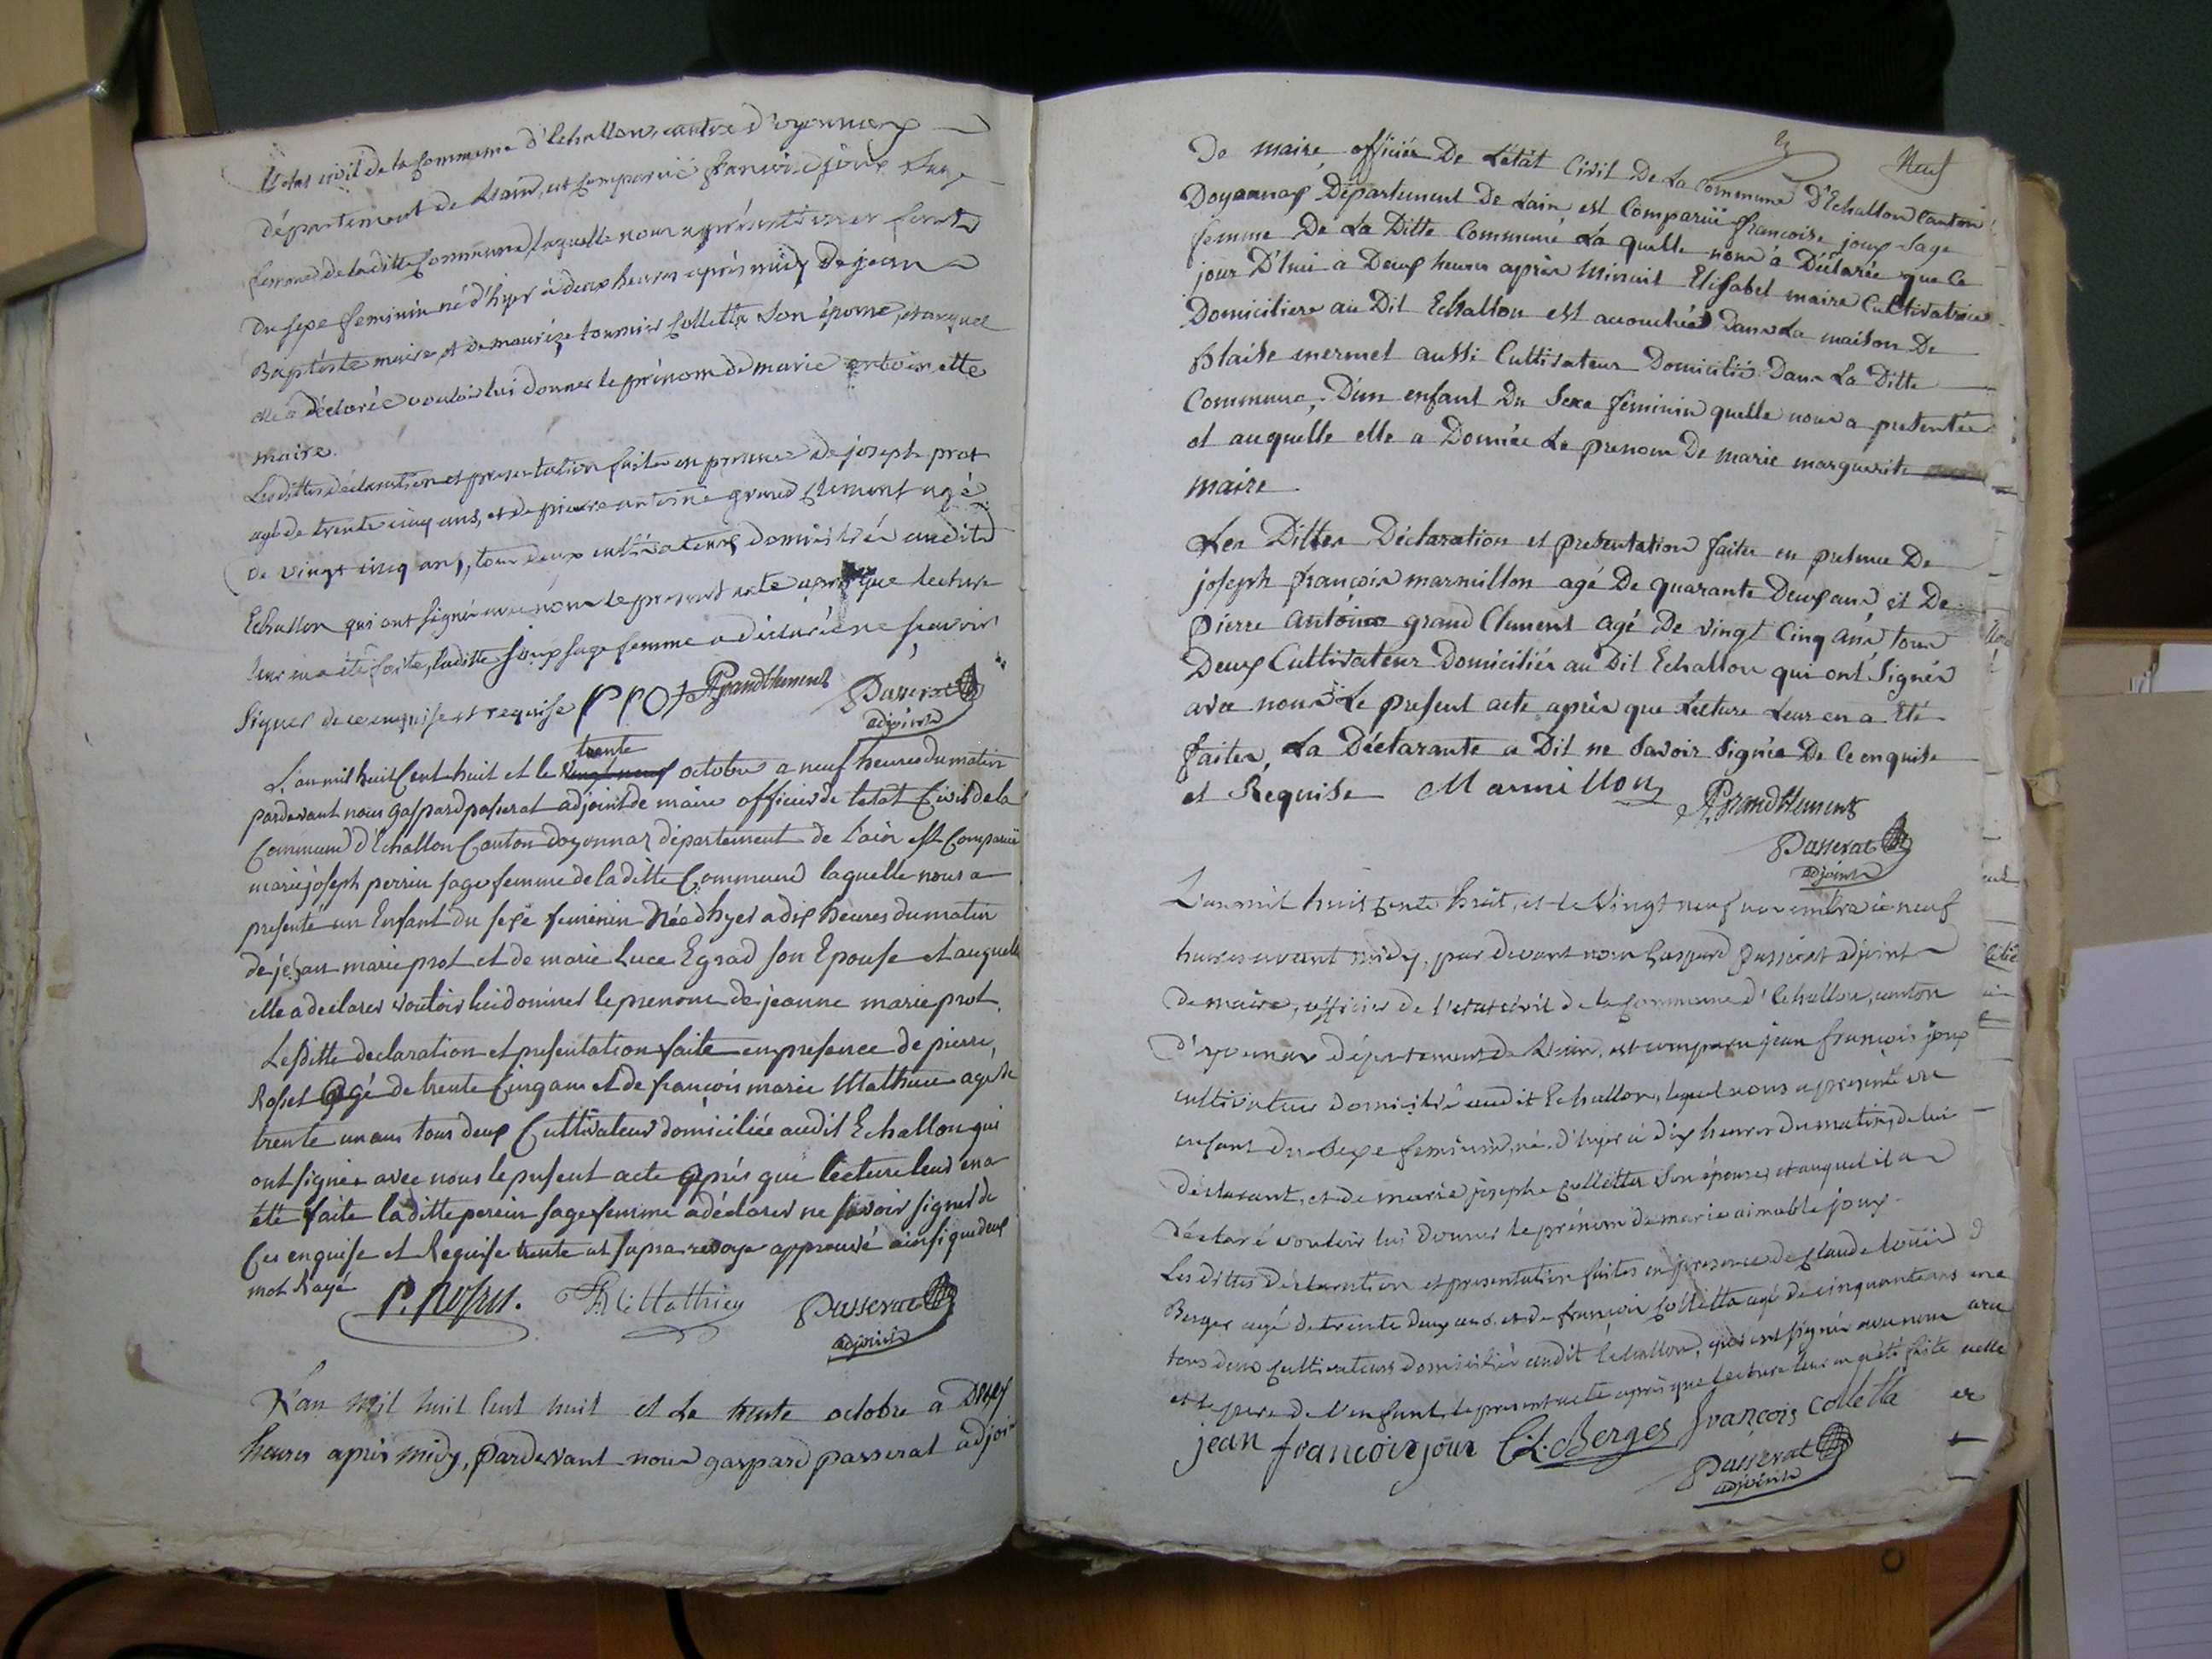 L'état civil de la Commune d'Echallon, canton d'oyonnax
département de L'ain, est Comparüe francoise joux Sage
femme de la ditte Commune, laquelle nous a présenté un enfant
du sexe feminin né d'hyer à deux heures après midy de jean
Baptiste maire, et de maurize tournier Colletta son épouse, et auquel
elle a déclaré vouloir lui donner le prénom de marie antoinette
maire.
Lesdittes déclaration et présentation faites en présence de joseph prot
agé de trente cinq ans, et de pierre antoine grand Clement agé
de vingt cinq ans, tous deux cultivateurs domiciliés audit
Echallon qui ont signé avec nous le present acte après que lecture
leur en a été faite, laditte joux sage femme a déclaré ne scavoir
signer de ce enquise et requise PROT AGrandClement Passerat
adjoint
trente
L'an mil huit Cent huit et le vingt neuf octobre a neuf heures du matin
pardevant nous gaspard passerat adjoint de maire officier de letat Civil de la
Commune d'Echallon Canton doyonnax département de l'ain est Comparüe
marie joseph perrin sage femme de la ditte Commune laquelle nous a
presenté un Enfant du sexe feminin Née dhyer a dix heures du matin
de jean marie prot et de marie Luce Egrad son Epouse et auquelle
elle a declarer vouloir lui donner le prenom de jeanne marie prot.
Lesditte declaration et presentation faite en presence de pierre,
Rosset agé de trente Cinq ans et de francois marie Mathieu agé de
trente un ans tous deux Cultivateur domiciliée audit Echallon qui
ont signer avec nous le present acte après que lecture leur en a
été faite laditte perrin sage femme a déclarer ne savoir signer de
Ces enquise et Requise trente ut supra renvoye approuvé ainsi que deux
mot Rayé P. Rosset. FM Mathieu Passerat
adjoint
L'an Mil huit Cent huit et Le trente octobre a Deux
heures après midy, pardevant nous gaspard passerat adjoint
Neuf
De maire officier De L'état Civil De La Commune D'Echallon Canton
Doyonnax Département De Lain est Comparüe francoise joux Sage
femme De La Ditte Commune La quelle nous à Déclarée que le
jour D'hui à Deux heures après Minuit Elisabet maire Cultivatrice
Domiciliere au Dit Echallon est accouchée Dans La maison De
Blaise mermet aussi Cultivateur Domicilié Dans La Ditte
Commune, D'un enfant Du Sexe féminin quelle nous a presentée
et auquelle elle a Donnée Le prenom De marie marguerite
maire
Les Dittes Déclaration et presentation faites en presence De
joseph françois marmillon agé De quarante Deux ans et De
pierre antoine grand Clement agé De vingt Cinq ans tous
Deux Cultivateur Domiciliés au Dit Echallon qui ont Signés
avec nous Le present acte après que Lecture Leur en a Eté
faites, La Déclarante a Dit ne Savoir Signée De Ce enquise
et Requise Marmillon AGrandClement
Passerat
adjoint
L'an mil huit cents huit, et le vingt neuf novembre à neuf
heures avant midy, par devant nous Gaspard Passerat adjoint
de maire, officier de l'etat civil de la Commune d'Echallon, canton
d'oyonnax département de L'ain, est comparu jean françois joux
cultivateur domicilié audit Echallon, lequel nous a presenté un
enfant du sexe feminin, né d'hyer à dix heures du matin, de lui
déclarant, et de marie josephe Colletta son épouse, et auquel il a
déclaré vouloir lui donner le prénom de marie aimable joux.
Les dittes déclaration et presentation faites en presence de Claude Louis
Berger agé de trente deux ans et de françois Colletta agé de cinquante ans
tous deux Cultivateurs domiciliés audit Echallon, qui ont signé avec nous
et le pere de l'enfant, le present acte après que lecture leur en a été faite
jean francois joux C.L. Berger françois Colletta
Passerat
adjoint